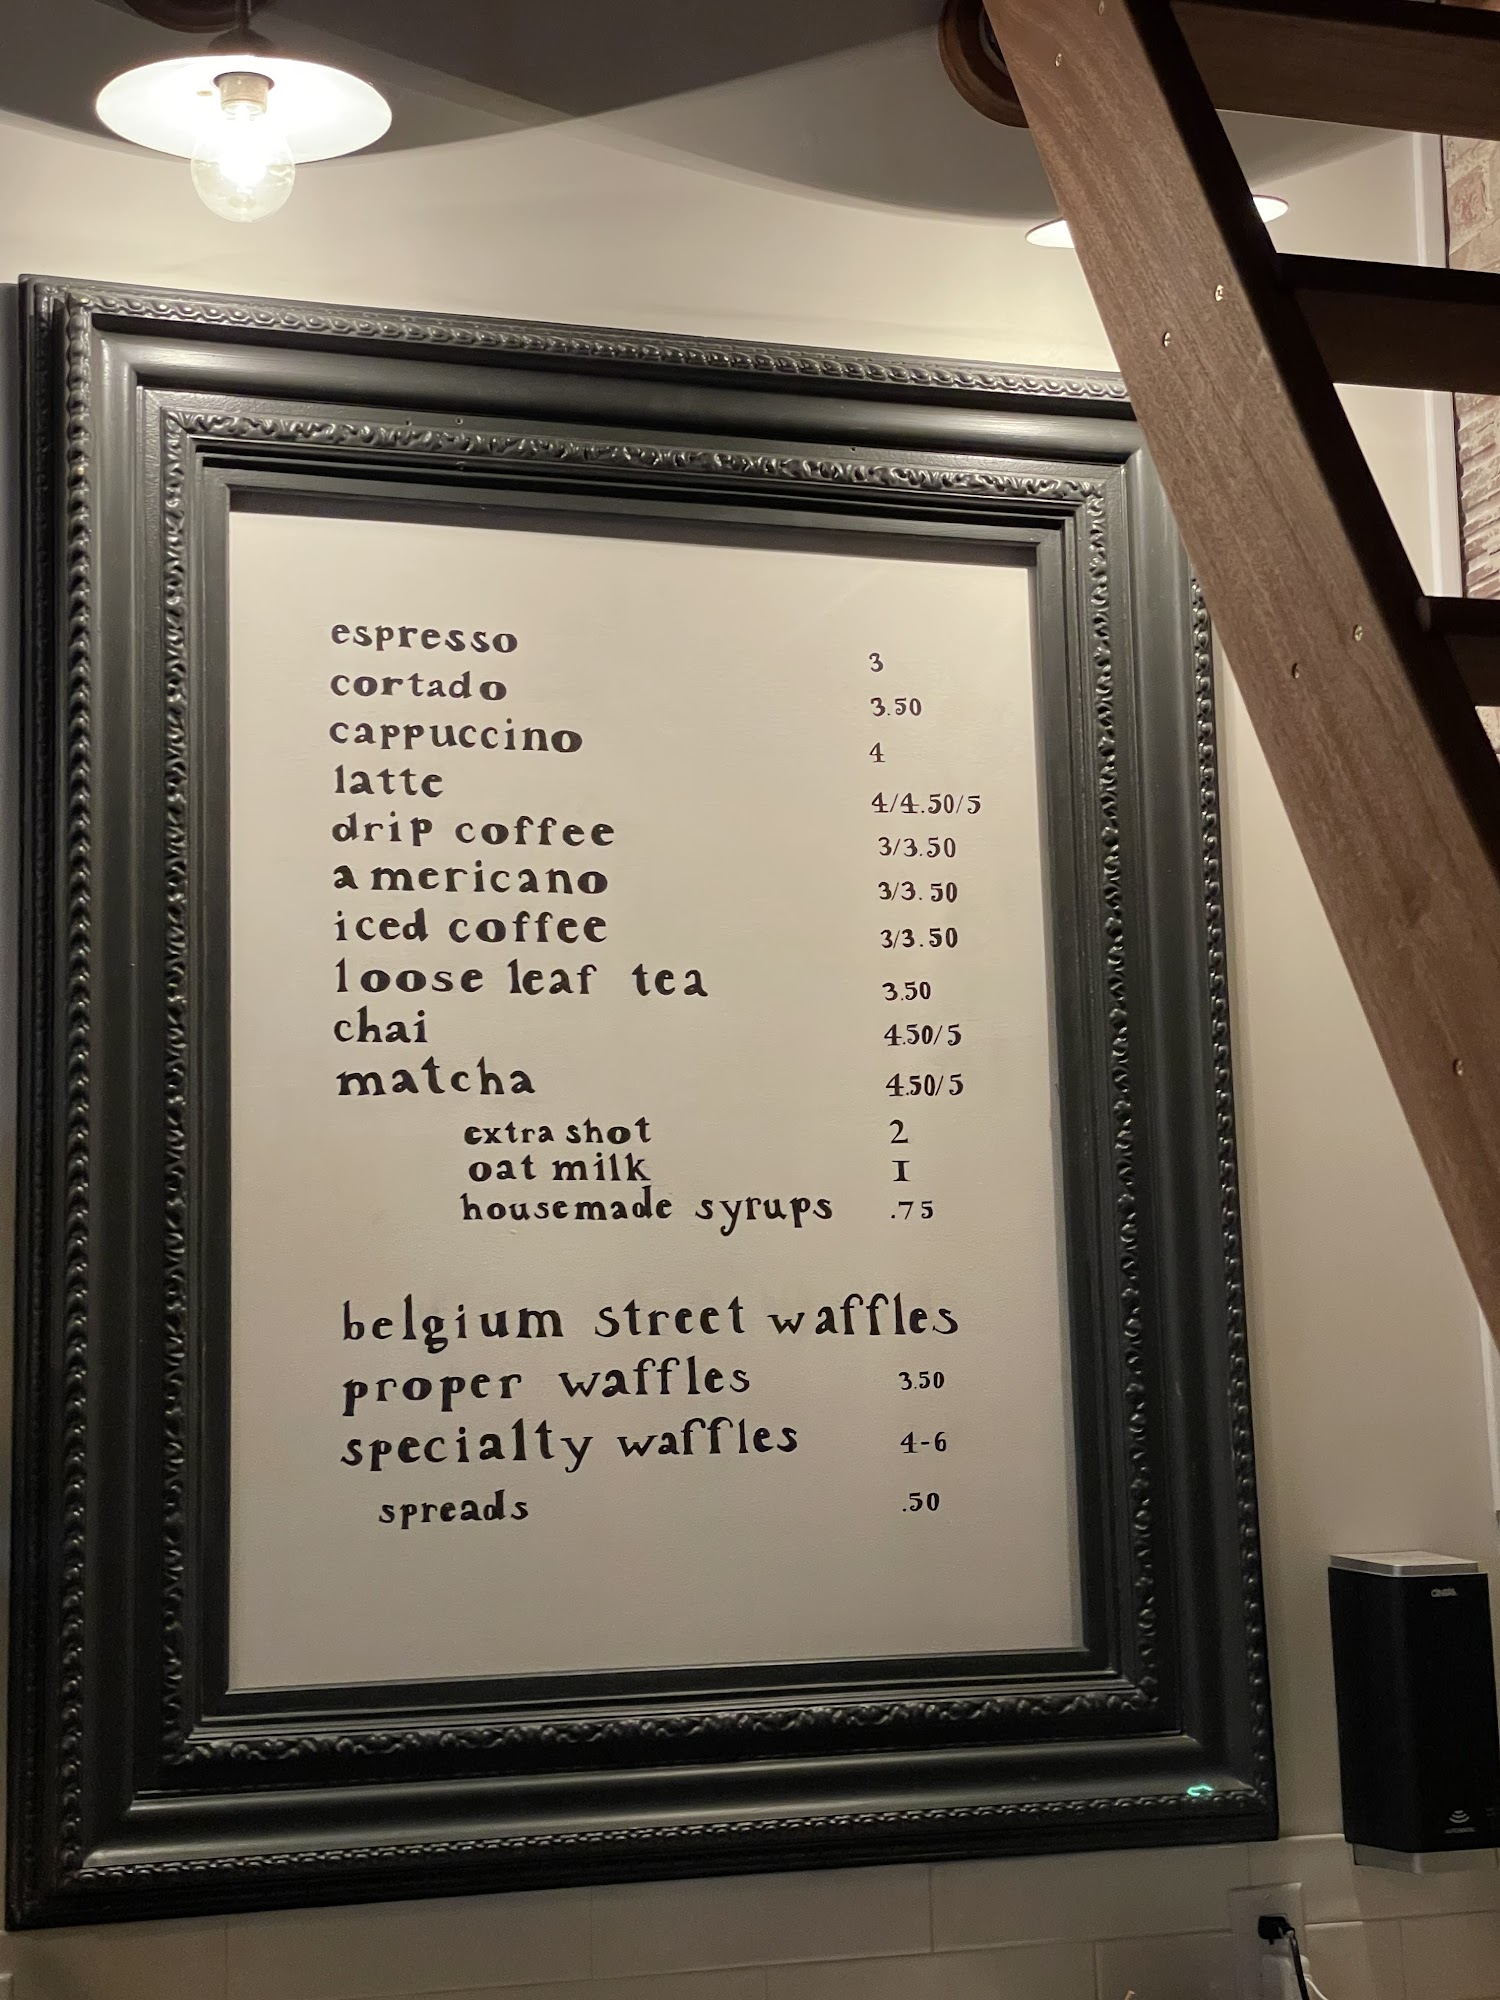 espresso 3
cortado 3.50
cappuccino 4
latte 4/4.50/5
drip coffee 3/3.50
americano 3/3.50
iced coffee 3/3.50
loose leaf tea 3.50
chai 4.50/5
matcha 4.50/5
extra shot 2
oat milk 1
housemade syrups .75
belgium street waffles
proper waffles 3.50
specialty waffles 4-6
spreads .50